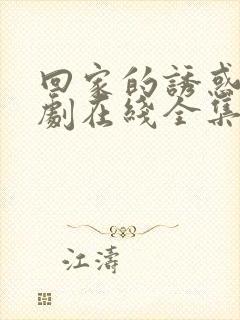 回家的誘惑
劇在綫全集
江濤